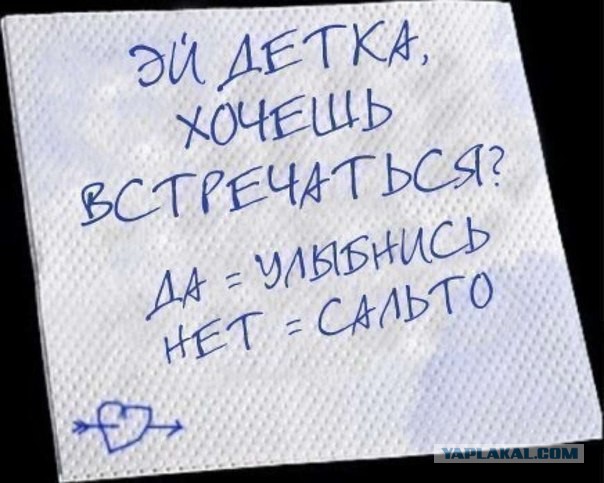 ЭЙ ДЕТКА,
ХОЧЕШЬ
ВСТРЕЧАТЬСЯ?
ДА = УЛЫБНИСЬ
НЕТ = САЛЬТО
YAPLAKAL.COM